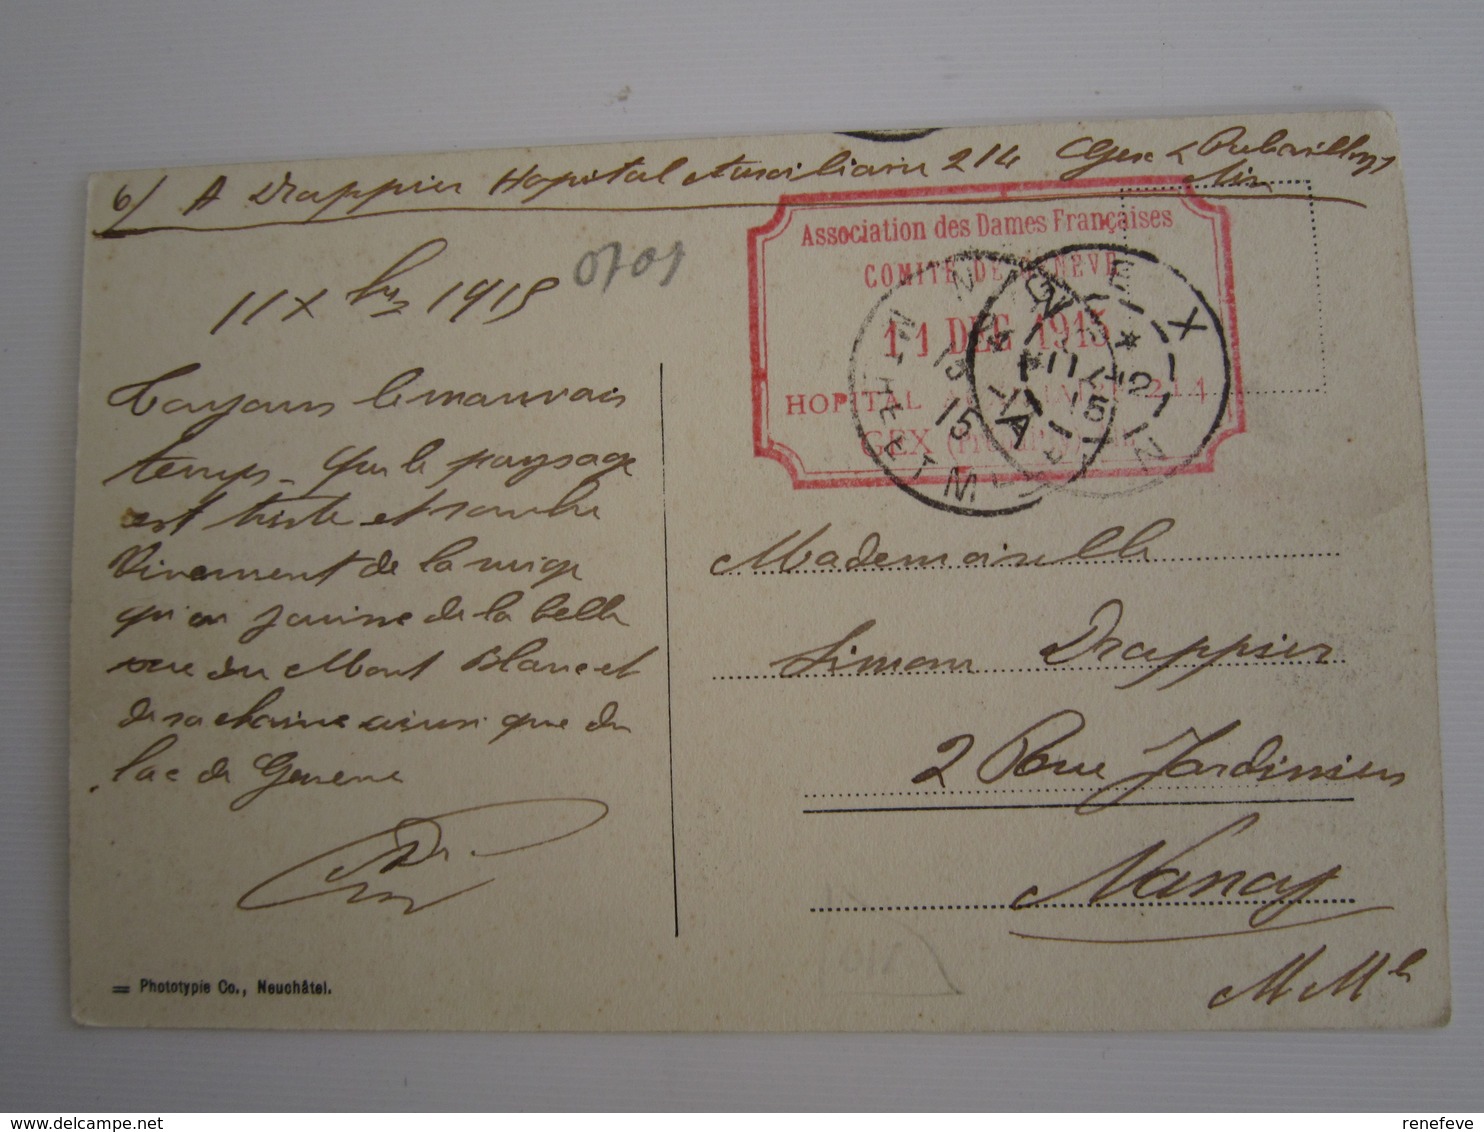 6/ A Drappier Hopital Auxiliaire 214 Gex
Ain
11 Xbre 1915
0709
Association des Dames Françaises
COMITÉ DE GENÈVE
11 DEC 1915
HOPITAL AUXILIAIRE 214
GEX
GEX
11-12
15
AIN
le mauvais
temps. Que le paysage
est triste et sombre
Vivement de la neige
qu'on jouisse de la belle
vue du Mont Blanc et
de sa chaine ainsi que du
lac de Geneve
Mademoiselle
Simone Drappier
2 Rue Jardiniers
Nancy
M Mlle
= Phototypie Co., Neuchâtel.
delcampe.net
renefeve